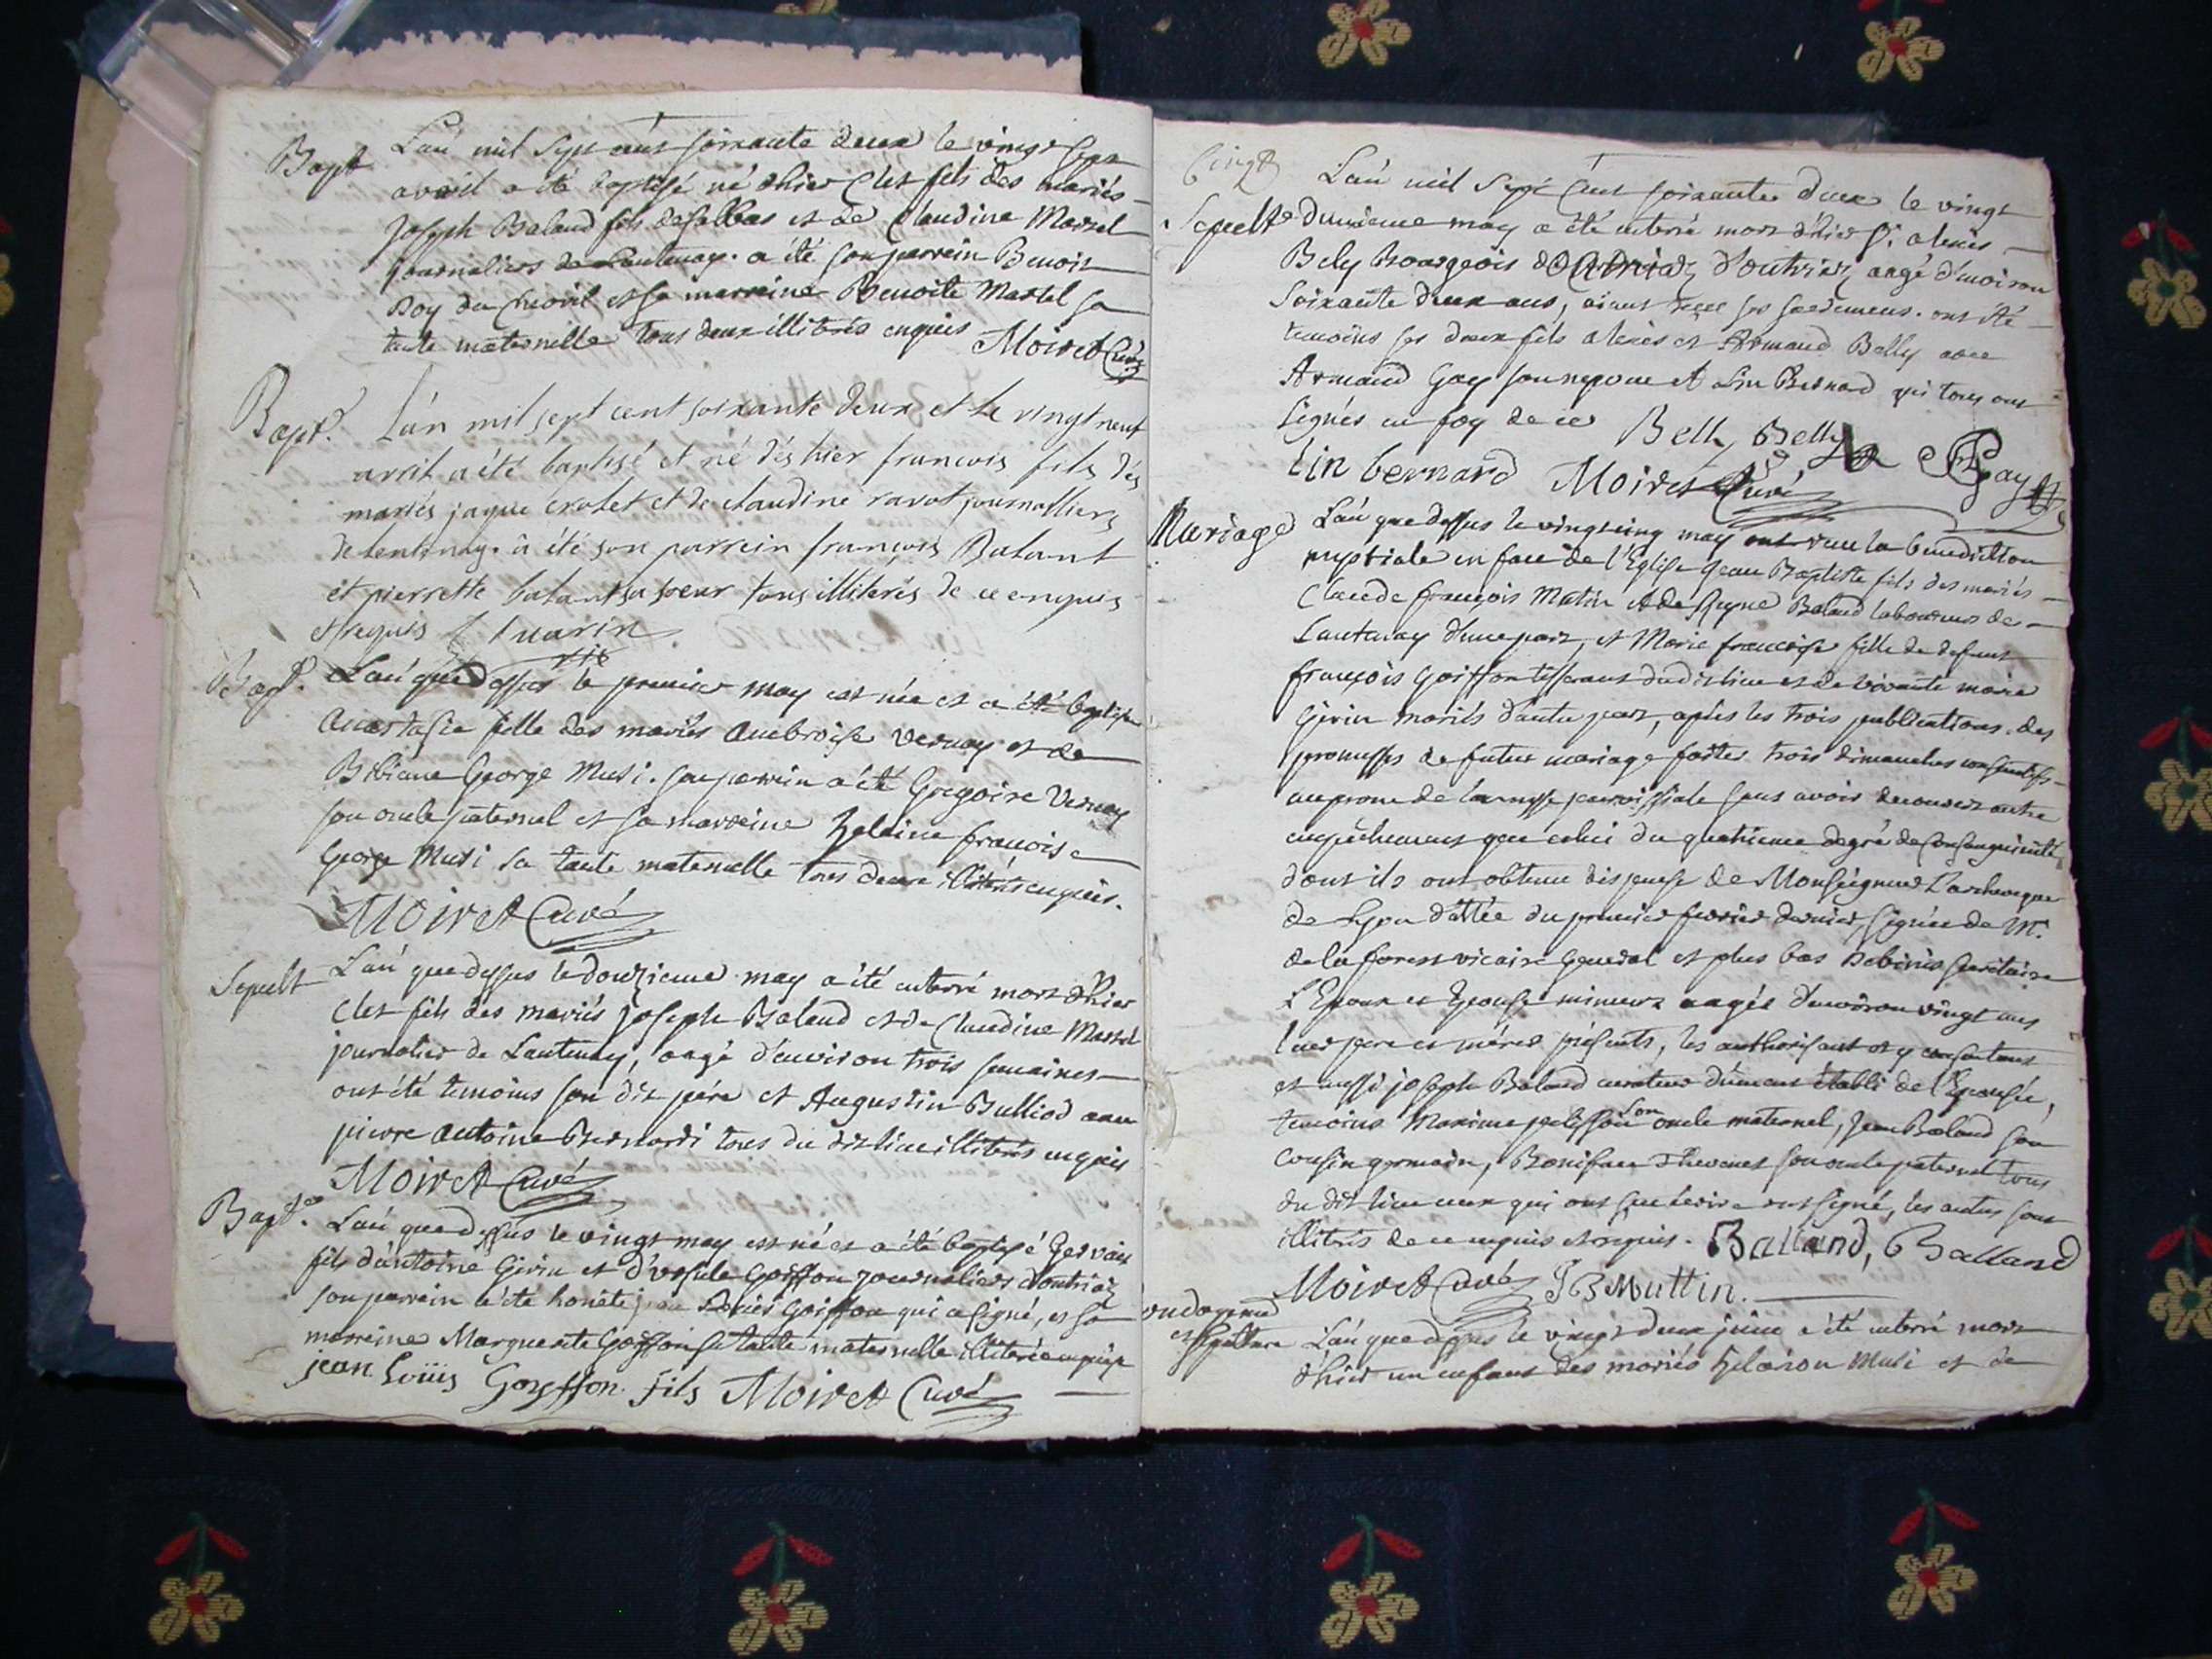 Bapt L'an mil sept cent soixante deux le vingt sept
avril a été baptisé né d'hier Clet fils des mariés
Joseph Baland fils de Sabbas et de Claudine Martel
journaliers de Lantenay. a été son parrein Benoit
Roy du et sa marreine Benoite Martel sa
tante maternelle tous deux illiterés enquis Moiret Curé
Bapt. L'an mil sept cent soixante deux et le vingt neuf
avril a été baptisé et né dés hier francois fils dés
mariés jaque crolet et de claudine ravot journalliers
de lentenay. à été son parrein françois Balant
et pierrette balant sa soeur tous illiterés de ce enquis
et requis
Bapt. L'an que dessus le premier may est née et a été baptisée
Anastasie fille des mariés Ambroise Vernay et de
Bibiane George Musi. son parrein a été Gregoire Vernay
son oncle paternel et sa marreine helaine francoise
George Musi sa tante maternelle tous deux illiterés enquis.
Moiret Curé
Sepult L'an que dessus le douzieme may a été enterré mort d'hier
Clet fils des mariés joseph Baland et de Claudine Martel
journalier de Lantenay, aagé d'environ trois semaines
ont été temoins son dit pére et Augustin Bulliod avec
pierre antoine Bernardi tous du dit lieu illiterés enquis
Moiret Curé
Bapt. L'an que dessus le vingt may est né et a été baptisé Gervais
fils d'antoine Girin et d'ursule Goiffon journaliers d'outriaz
son parrein a été honête j. Louis Goiffon qui a signé, et sa
marreine Marguerite Goiffon sa tante maternelle illiterée enquise
jean Loüis Goyffon fils Moiret Curé
L'an mil sept cent soixante deux le vingt
Sepult deuxieme may a été enterré mort d'hier Sr. alexis
Bely Bourgeois d'outriaz aagé d'environ
soixante deux ans, aiant reçu ses sacremens. ont été
temoins ses deux fils alexis et Armand Belly avec
Armand Gay son neveu et Lin Bernard qui tous ont
signés en foy de ce Belly Belly Gay
Lin bernard Moiret Curé
Mariage L'an que dessus le vingt cinq may ont reçu la benediction
nuptiale en face de l'Eglise jean Baptiste fils des mariés
Claude françois Matin et de Reyne Baland laboureurs de
Lantenay d'une part, et Marie francoise fille de defunt
françois Goiffon tisserant dudit lieu et de vivante marie
Girin mariés d'autre part, après les trois publications des
promesses de futur mariage faites trois dimanches consecutifs
au prone de la messe parroissiale sans avoir decouvert autre
empêchement que celui du quatrieme degré de consanguinité
dont ils ont obtenu dispense de Monseigneur L'archeveque
de Lyon dattée du premier fevrier dernier, signée de Mr.
de la forest vicaire general et plus bas secretaire
L'Epoux et Epouse mineurs aagés d'environ vingt ans
leur pere et méres présents, les authorisant et y consentant
et aussi joseph Baland curateur dûment établi de l'Epouse,
temoins Maxime pelisson son oncle maternel, jean Baland son
cousin germain, Boniface thevenet son oncle paternel tous
du dit lieu ceux qui ont sçu écrire ont signé, les autres sont
illiterés de ce enquis et requis. Balland, Balland
Moiret Curé J B Muttin.
ondoyement
et sepulture L'an que dessus le vingt deux juin a été enterré mort
d'hier un enfant des mariés hilarion Musi et de